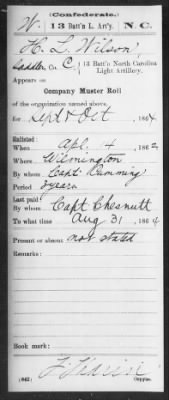 (Confederate.)
W. 13 Batt'n L. Art'y. N. C.
H. L. Wilson
Saddler, Co. C, 13 Batt'n North Carolina
Light Artillery.
Appears on
Company Muster Roll
of the organization named above,
for Sept & Oct, 1864
Enlisted:
When Apl. 4, 1862
Where Wilmington
By whom Capt. Cumming
Period 3 years
Last paid:
By whom Capt Chesnutt
To what time Aug 31, 1864
Present or absent not stated
Remarks:
Book mark:
(642) Copyist.